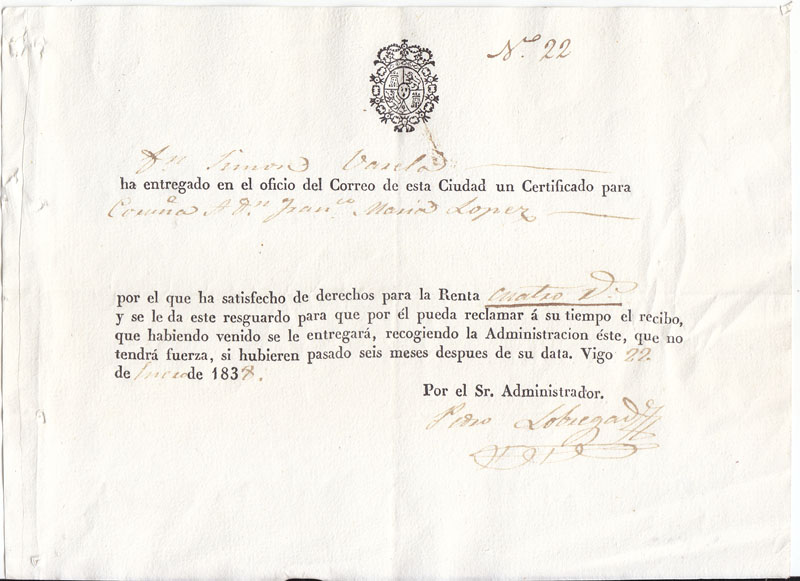 N.º 22
Dn Simon Varela
ha entregado en el oficio del Correo de esta Ciudad un Certificado para
Coruña A Dn Franco Maria Lopez
por el que ha satisfecho de derechos para la Renta cuatro Rs
y se le da este resguardo para que por él pueda reclamar á su tiempo el recibo,
que habiendo venido se le entregará, recogiendo la Administracion éste, que no
tendrá fuerza, si hubieren pasado seis meses despues de su data. Vigo 22
de Enero de 1838.
Por el Sr. Administrador.
Pedro